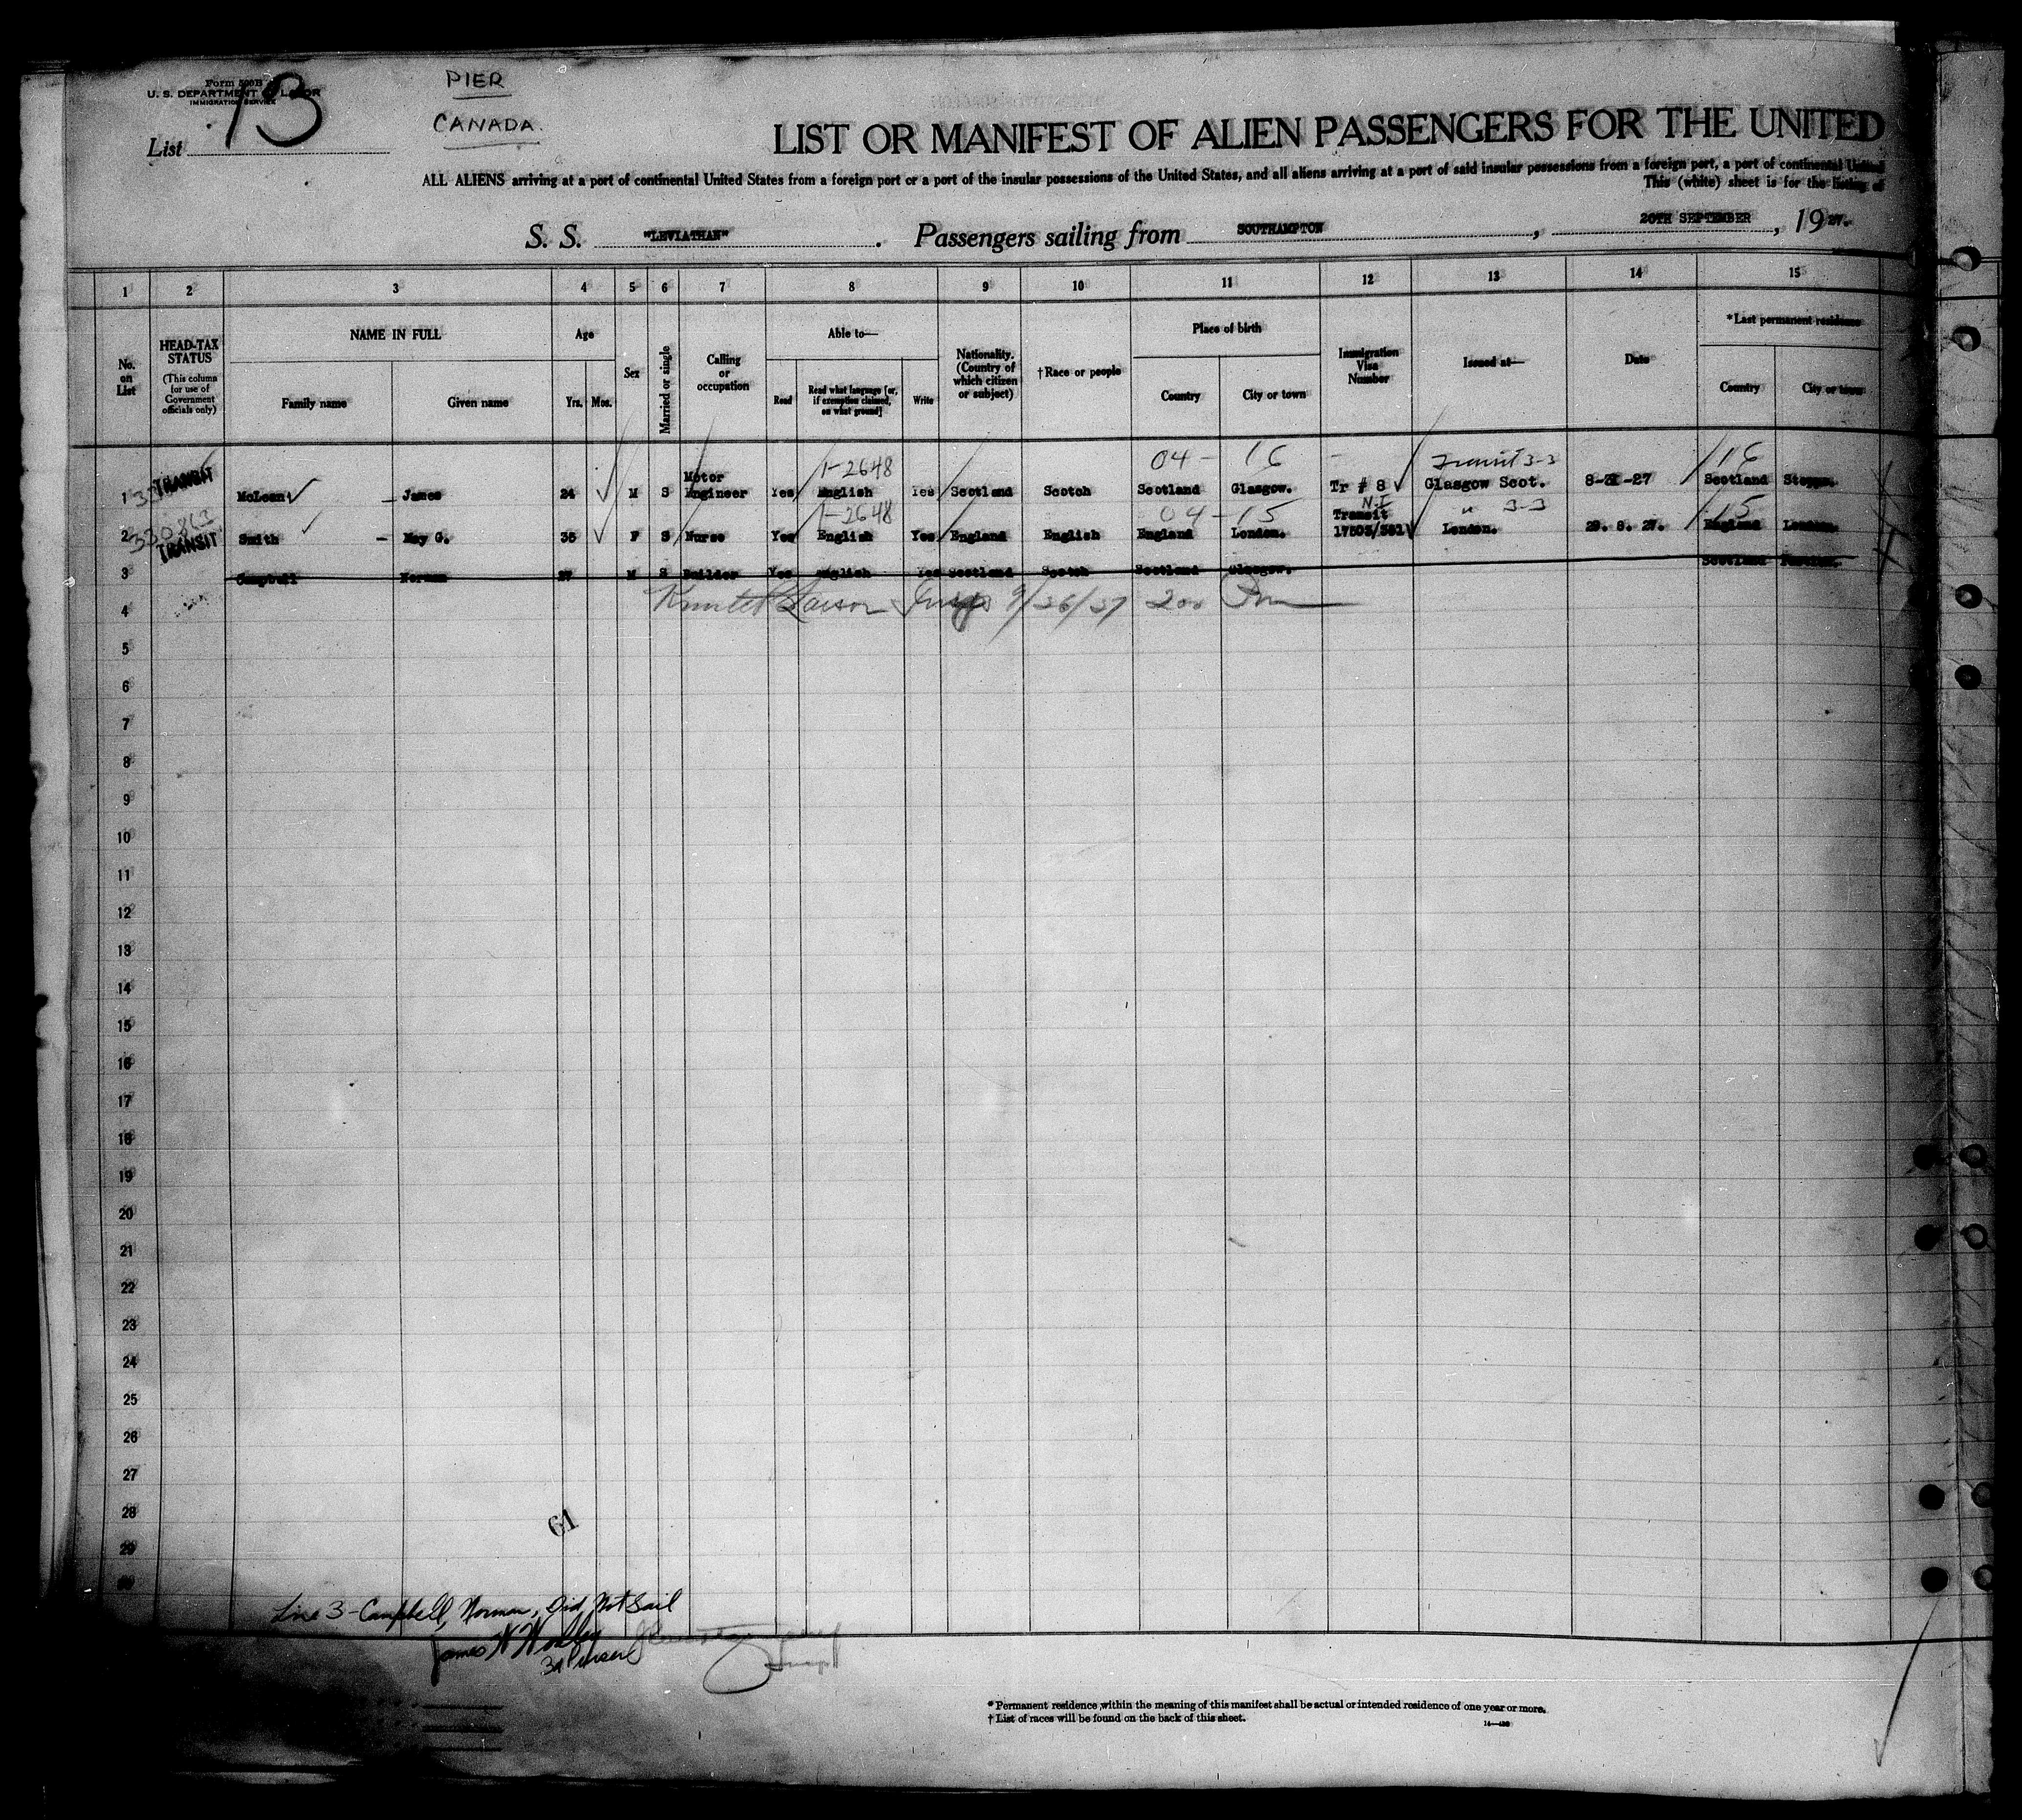 Form 500B
U. S. DEPARTMENT OF LABOR
IMMIGRATION SERVICE
List 13
PIER
CANADA.
LIST OR MANIFEST OF ALIEN PASSENGERS FOR THE UNITED
ALL ALIENS arriving at a port of continental United States from a foreign port or a port of the insular possessions of the United States, and all aliens arriving at a port of said insular possessions from a foreign port, a port of continental United
This (white) sheet is for the listing of
S. S. "LEVIATHAN". Passengers sailing from SOUTHAMPTON, 20TH SEPTEMBER, 1927.
1 2 3 4 5 6 7 8 9 10 11 12 13 14 15
No. on List
HEAD-TAX STATUS
(This column for use of Government officials only)
NAME IN FULL
Family name Given name
Age
Yrs. Mos.
Sex
Married or single
Calling or occupation
Able to—
Read Read what language [or, if exemption claimed, on what ground] Write
Nationality. (Country of which citizen or subject)
†Race or people
Place of birth
Country City or town
Immigration Visa Number
Issued at—
Date
*Last permanent residence
Country City or town
1-2648 04 - 16 Transit 3-3 16
1 TRANSIT McLean James 24 M S Motor Engineer Yes English Yes Scotland Scotch Scotland Glasgow. Tr # 8 Glasgow Scot. 8-31-27 Scotland Stepps.
1-2648 04 - 15 N.I " 3-3 15
2 TRANSIT Smith May G. 36 F S Nurse Yes English Yes England English England London. Transit 17503/381 London. 29. 8. 27. England London.
3 Campbell Norman 27 M S Builder Yes English Yes Scotland Scotch Scotland Glasgow. Scotland
4 Larson 9/26/27 200 Pm
5
6
7
8
9
10
11
12
13
14
15
16
17
18
19
20
21
22
23
24
25
26
27
28
29
30
61
Line 3 - Campbell, Norman, Did Not Sail
James W
3d Purser
* Permanent residence within the meaning of this manifest shall be actual or intended residence of one year or more.
† List of races will be found on the back of this sheet.